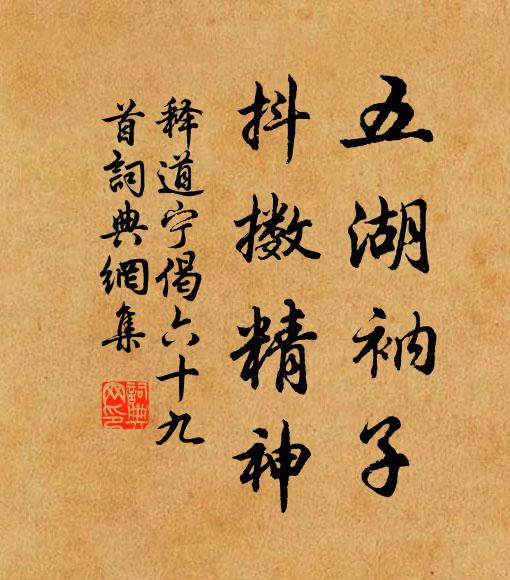 五湖衲子
抖擻精神
释道宁偈六十九
首詞典網集
詞典
网印